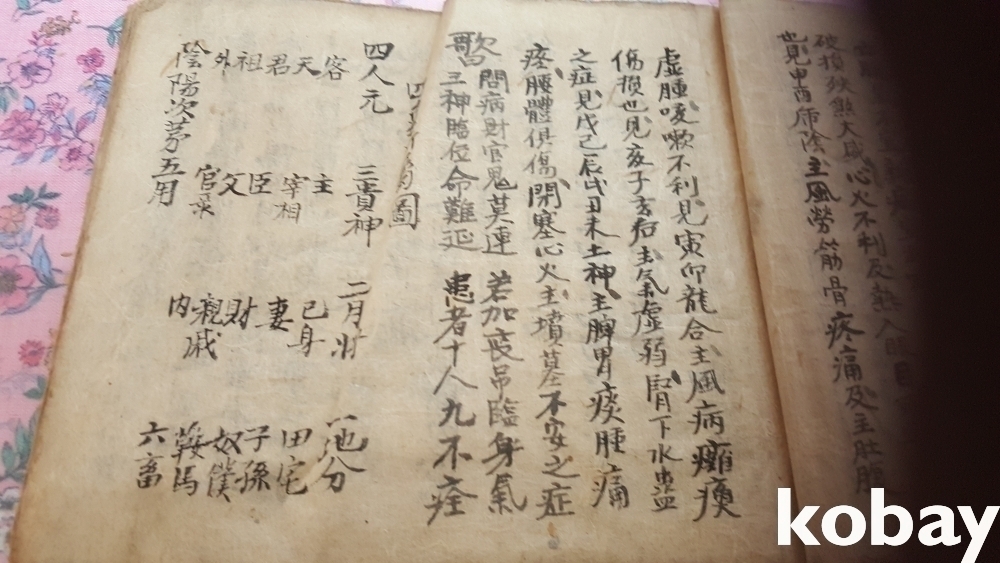 破損殃煞大感心火不利及熱入
也見申酉庚陰主風勞筋骨疼痛及主肚腹
虛腫咳嗽不利見寅卯龍合主風病癱瘓
傷損也見亥子玄右主气虛弱腎下水蠱
之症見戊己辰戌丑未土神主脾胃痰腫痛
疼腰體俱傷閉塞心火主墳墓不安之症
歌曰 問病財官鬼莫連 若加喪吊臨身氣
三神臨位命難延 患者十人九不痊
圖
四人元 三貴神 二月将 一地分
客 主 己身 田宅
天 宰相 妻 子孫
君 臣 財 奴僕
祖 父 親戚 鞍馬
外 官彔 内 六畜
陰陽次茅五用
kobay